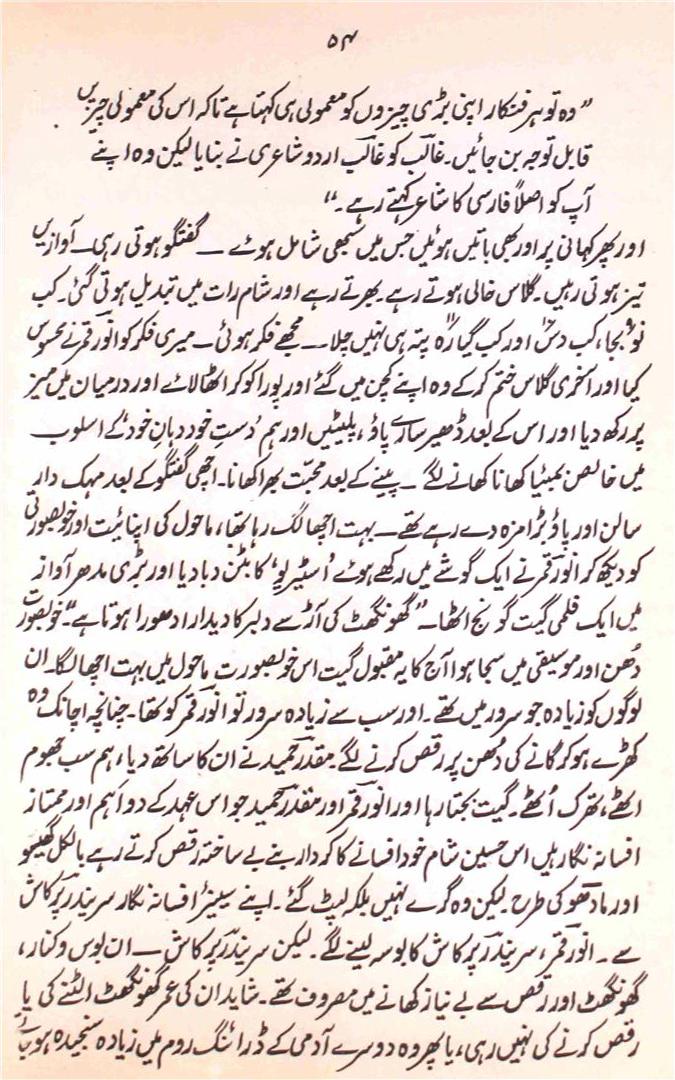 ۵۴
”وہ تو ہر فنکار اپنی بڑی چیزوں کو معمولی ہی کہتا ہے تاکہ اس کی معمولی چیزیں
قابل توجہ بن جائیں۔ غالبؔ کو غالبؔ اردو شاعری نے بنایا لیکن وہ اپنے
آپ کو اصلاً فارسی کا شاعر کہتے رہے۔“
اور پھر کہانی پر اور بھی باتیں ہوئیں جس میں سبھی شامل ہوئے ــ گفتگو ہوتی رہی۔ آوازیں
تیز ہوتی رہیں۔ گلاس خالی ہوتے رہے۔ بھرتے رہے اور شام رات میں تبدیل ہوتی گئی۔ کب
نو بجا، کب دس اور کب گیارہ پتہ ہی نہیں چلا ــ مجھے فکر ہوئی ــ میری فکر کو انور قمر نے محسوس
کیا اور آخری گلاس ختم کرکے وہ اپنے کچن میں گئے اور پورا کوکر اٹھالائے اور درمیان میں میز
پر رکھ دیا اور اس کے بعد ڈھیر سارے پاؤ، پلیٹیں اور ہم ’دستِ خود دہانِ خود‘ کے اسلوب
میں خالص بمبئیا کھانا کھانے لگے ــ پینے کے بعد محبّت بھرا کھانا۔ اچھی گفتگو کے بعد مہک دار
سالن اور پاؤ بڑا مزہ دے رہے تھے ــ بہت اچھا لگ رہا تھا، ماحول کی اپنائیت اور خوبصورتی
کو دیکھ کر انور قمر نے ایک گوشے میں رکھے ہوئے ’اسٹیریو‘ کا بٹن دبا دیا اور بڑی مدھر آواز
میں ایک فلمی گیت گونج اٹھا۔ ”گھونگھٹ کی آڑ سے دلبر کا دیدار ادھورا ہوتا ہے“۔ خوبصورت
دُھن اور موسیقی میں سجا ہوا آج کا یہ مقبول گیت اس خوبصورت ماحول میں بہت اچھا لگا۔ ان
لوگوں کو زیادہ جو سرور میں تھے۔ اور سب سے زیادہ سرور تو انور قمر کو تھا۔ چنانچہ اچانک وہ
کھڑے ہوکر گانے کی دُھن پر رقص کرنے لگے۔ مقدر حمید نے ان کا ساتھ دیا، ہم سب جھوم
اٹھے، تھرک اُٹھے۔ گیت بجتا رہا اور انور قمر اور مقدر حمید جو اس عہد کے دو اہم اور ممتاز
افسانہ نگار ہیں اس حسین شام خود افسانے کا کردار بنے بے ساختہ رقص کرتے رہے بالکل گھیسو
اور مادھو کی طرح۔ لیکن وہ گرے نہیں بلکہ لپٹ گئے۔ اپنے سینیئر افسانہ نگار سریندر پرکاش
سے ۔ انور قمر، سریندر پرکاش کا بوسہ لینے لگے۔ لیکن سریندر پرکاش ــ ان بوس و کنار،
گھونگھٹ اور رقص سے بے نیاز کھانے میں مصروف تھے۔ شاید ان کی عمر گھونگھٹ الٹنے کی یا
رقص کرنے کی نہیں رہی، یا پھر وہ دوسرے آدمی کے ڈرائنگ روم میں زیادہ سنجیدہ